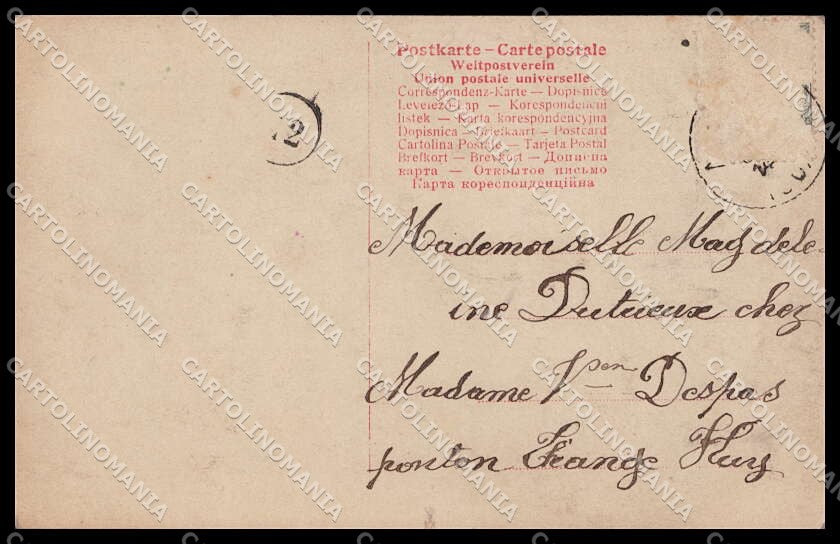 Postkarte – Carte postale
Weltpostverein
Union postale universelle
Correspondenz-Karte — Dopisnice
Levelező-Lap — Korespondencni
listek — Karta korespondencyjna
Dopisnica — Briefkaart — Postcard
Cartolina Postale — Tarjeta Postal
Brefkort — Brevkort — Дописна
карта — Открытое письмо
Карта кореспонденцiйна
2
Mademoiselle Magdele-
ine Dutrieux chez
Madame Vven Despas
ponton Huy
CARTOLINOMANIA